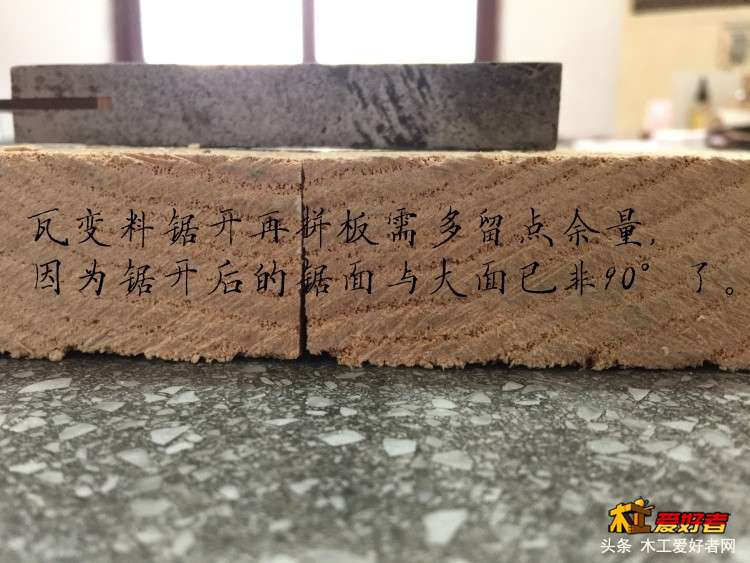 瓦变料锯开再拼板需多留点余量,
因为锯开后的锯面与大面已非90°了。
木工爱好者
头条 木工爱好者网